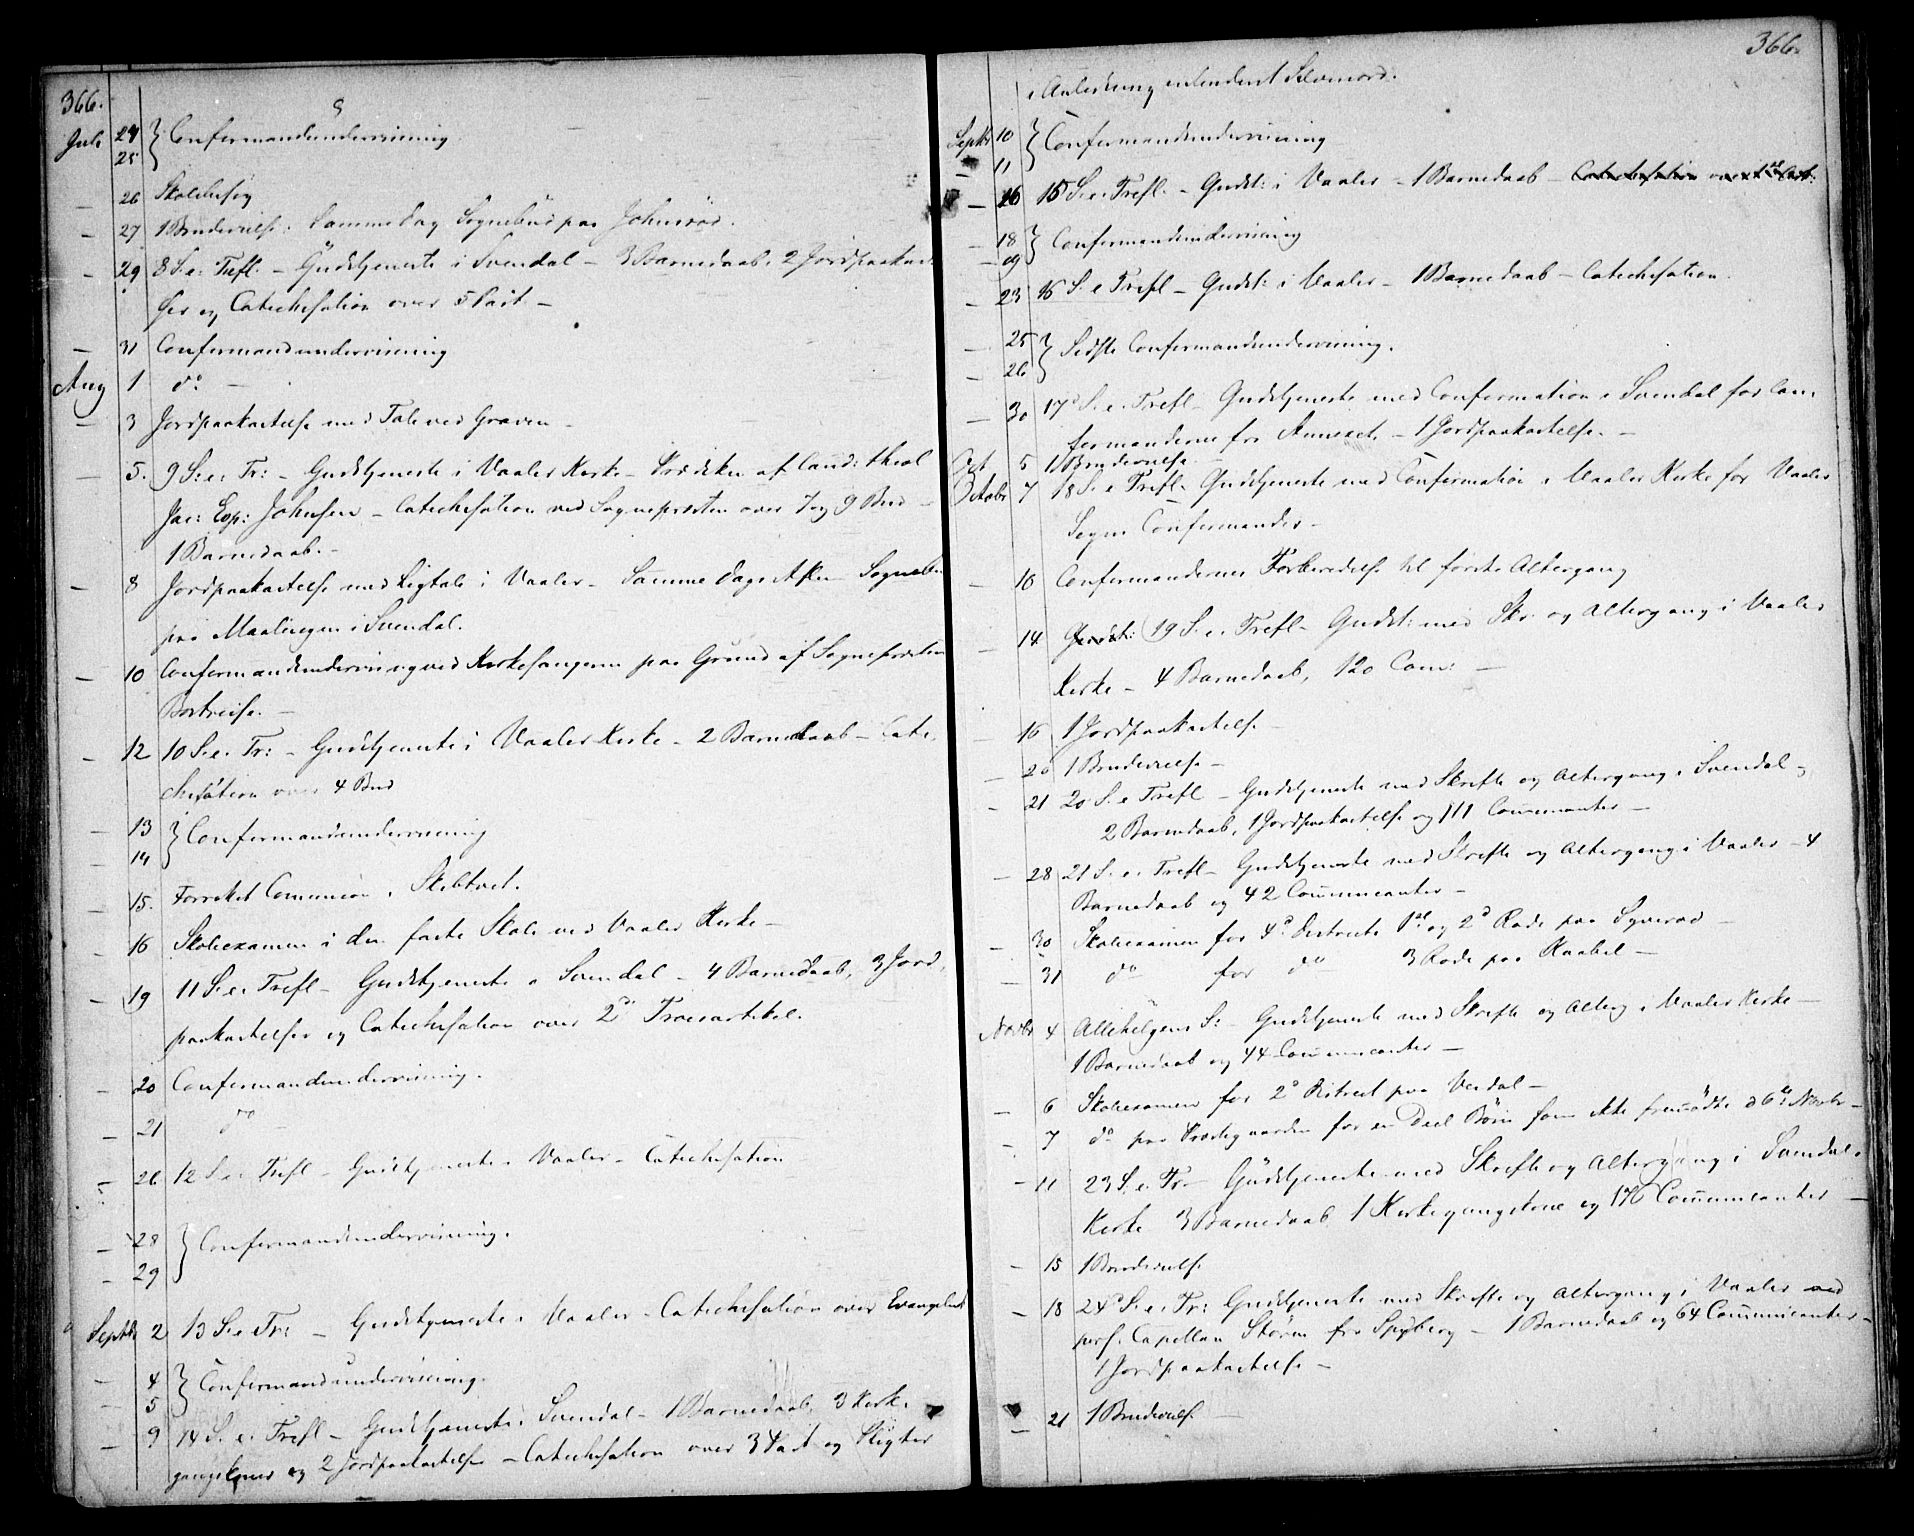 366.
Juli 24 } Confirmandundervisning
25
— 26 Skolebesøg
— 27 1 Brudevielse: Samme Dag Sognebud paa Johnsrød.
— 29 8 S. e. Trefl. — Gudstjeneste i Svendal — 3 Barnedaab, 2 Jordpaakastel-
ser og Catechisation over 5 Part —
— 31 Confirmandundervisning
Aug 1 do —
— 3 Jordpaakastelse med Tale ved Graven —
— 5. 9 S: e: Tr: — Gudstjeneste i Vaaler Kirke — Prædiken af Cand: theol
Jac: Esp: Johnsen — Catechisation ved Sognepresten over 7 og 9 Bud —
1 Barnedaab. —
— 8 Jordpaakastelse med Ligtale i Vaaler — Samme Dags Aften Sognebud
paa Maalingen i Svendal.
— 10 Confirmandundervisning ved Kirkesangeren paa Grund af Sogneprestens
Bortreise. —
— 12 10 S. e. Tr: — Gudstjeneste i Vaaler Kirke — 2 Barnedaab — Cate-
chisation over 4 Bud
— 13 } Confirmandundervisning
— 14
— 15. Forrettet Communion i Skibtvet.
— 16 Skoleexamen i den faste Skole ved Vaaler Kirke —
— 19 11 S. e. Trefl — Gudstjeneste i Svendal — 4 Barnedaab, 3 Jord-
paakastelser og Catechisation over 2den Troesartikel.
— 20 Confirmandundervisning.
— 21 do —
— 26 12 S. e. Trefl — Gudstjeneste i Vaaler — Catechisation —
— 28 } Confirmandundervisning.
— 29
Septbr 2 13 S. e. Tr: — Gudstjeneste i Vaaler — Catechisation over Evangeliet
— 4 } Confirmandundervisning.
5
— 9 14 S. e. Trefl — Gudstjeneste i Svendal — 1 Barnedaab, 3 Kirke-
gangskoner og 2 Jordpaakastelser — Catechisation over 3 Part og Pligter
366.
i Anledning indtruffet Selvmord.
Septbr 10 } Confirmandundervisning
— 11
— 16 15 S. e. Trefl. — Gudst: i Vaaler — 1 Barnedaab — Catechisation over 1ste Art:
— 18 } Confirmandundervisning
— 19
— 23 16 S. e Trefl — Gudst: i Vaaler — 1 Barnedaab — Catechisation.
— 25 } Sidste Confirmandundervisning.
— 26
— 30 17 S. e. Trefl — Gudstjeneste med Confirmation i Svendal for Con-
firmanderne fra Annexet — 1 Jordpaakastelse. —
Oct 5 1 Brudevielse
Octobr 7 18 S. e Trefl — Gudstjeneste med Confirmation i Vaaler Kirke for Vaaler
Sogns Confirmander —
— 10 Confirmandernes Forberedelse til første Altergang
— 14 Gudst: 19 S. e. Trefl — Gudst: med Skr. og Altergang i Vaaler
Kirke — 4 Barnedaab, 120 Com: —
— 16 1 Jordpaakastelse —
— 20 1 Brudevielse —
— 21 20 S. e Trefl — Gudstjeneste med Skrifte og Altergang i Svendal —
2 Barnedaab, 1 Jordpaakastelse og 111 Communicanter —
— 28 21 S. e. Trefl — Gudstjeneste med Skrifte og Altergang i Vaaler — 4
Barnedaab og 42 Communicanter —
— 30 Skoleexamen for 4de Districts 1ste og 2den Rode paa Syverød —
— 31 do for do 3 Rode paa Kaabel —
Novbr 4 Allehelgens S: — Gudstjeneste med Skrifte og Alterg i Vaaler Kirke —
1 Barnedaab og 44 Communicanter —
— 6 Skoleexamen for 2den District paa Verdal —
— 7 do paa Prestegaarden for en Deel Børn som ikke fremmødte d 6te Novbr —
— 11 23 S. e. Tr — Gudstjeneste med Skrifte og Altergang i Svendal
Kirke 3 Barnedaab, 1 Kirkegangskone og 176 Communicanter —
— 15 1 Brudevielse
— 18 24 S. e. Tr: Gudstjeneste med Skrifte og Altergang i Vaaler ved
pers. Capellan Størm fra Spydberg — 1 Barnedaab og 64 Communicanter —
1 Jordpaakastelse —
— 21 1 Brudevielse —